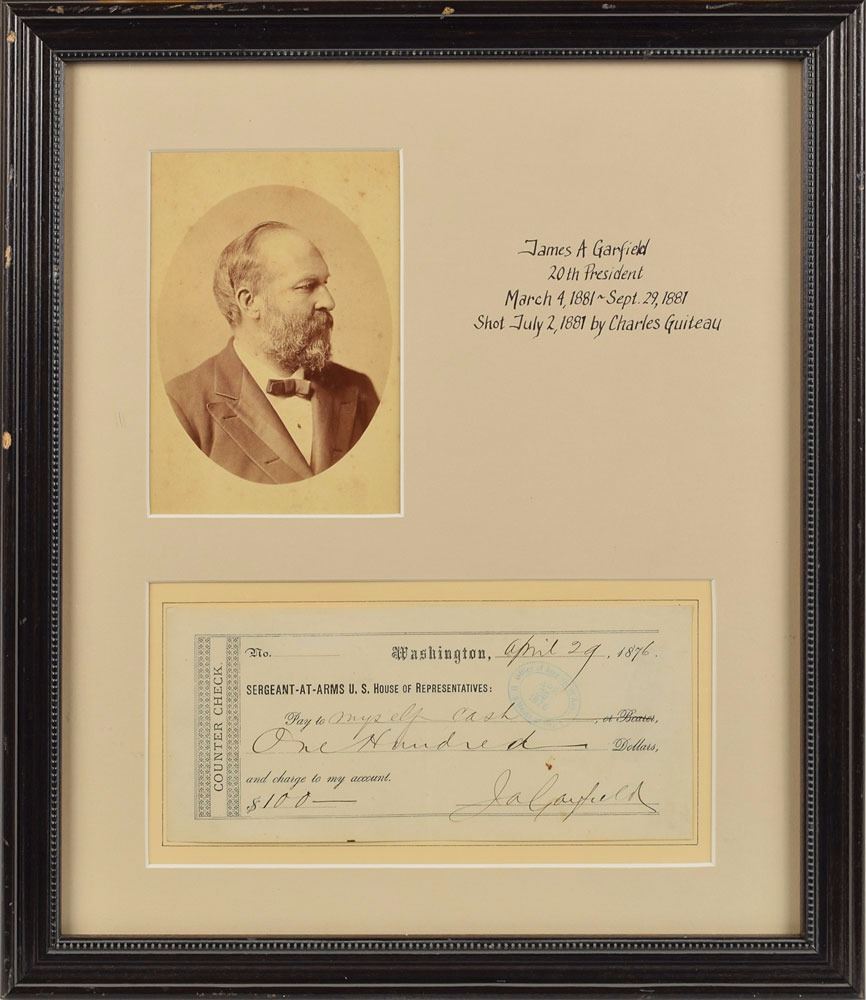 James A Garfield
20th President
March 4, 1881 ~ Sept. 29, 1881
Shot July 2, 1881 by Charles Guiteau
COUNTER CHECK.
No. Washington, April 29, 1876.
SERGEANT-AT-ARMS U. S. HOUSE OF REPRESENTATIVES:
Pay to myself cash, or Bearer,
One Hundred Dollars,
and charge to my account.
$100— J A Garfield